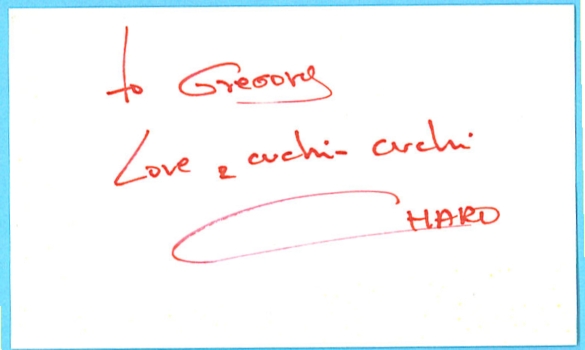 to Gregory
Love & cuchi- cuchi
CHARO